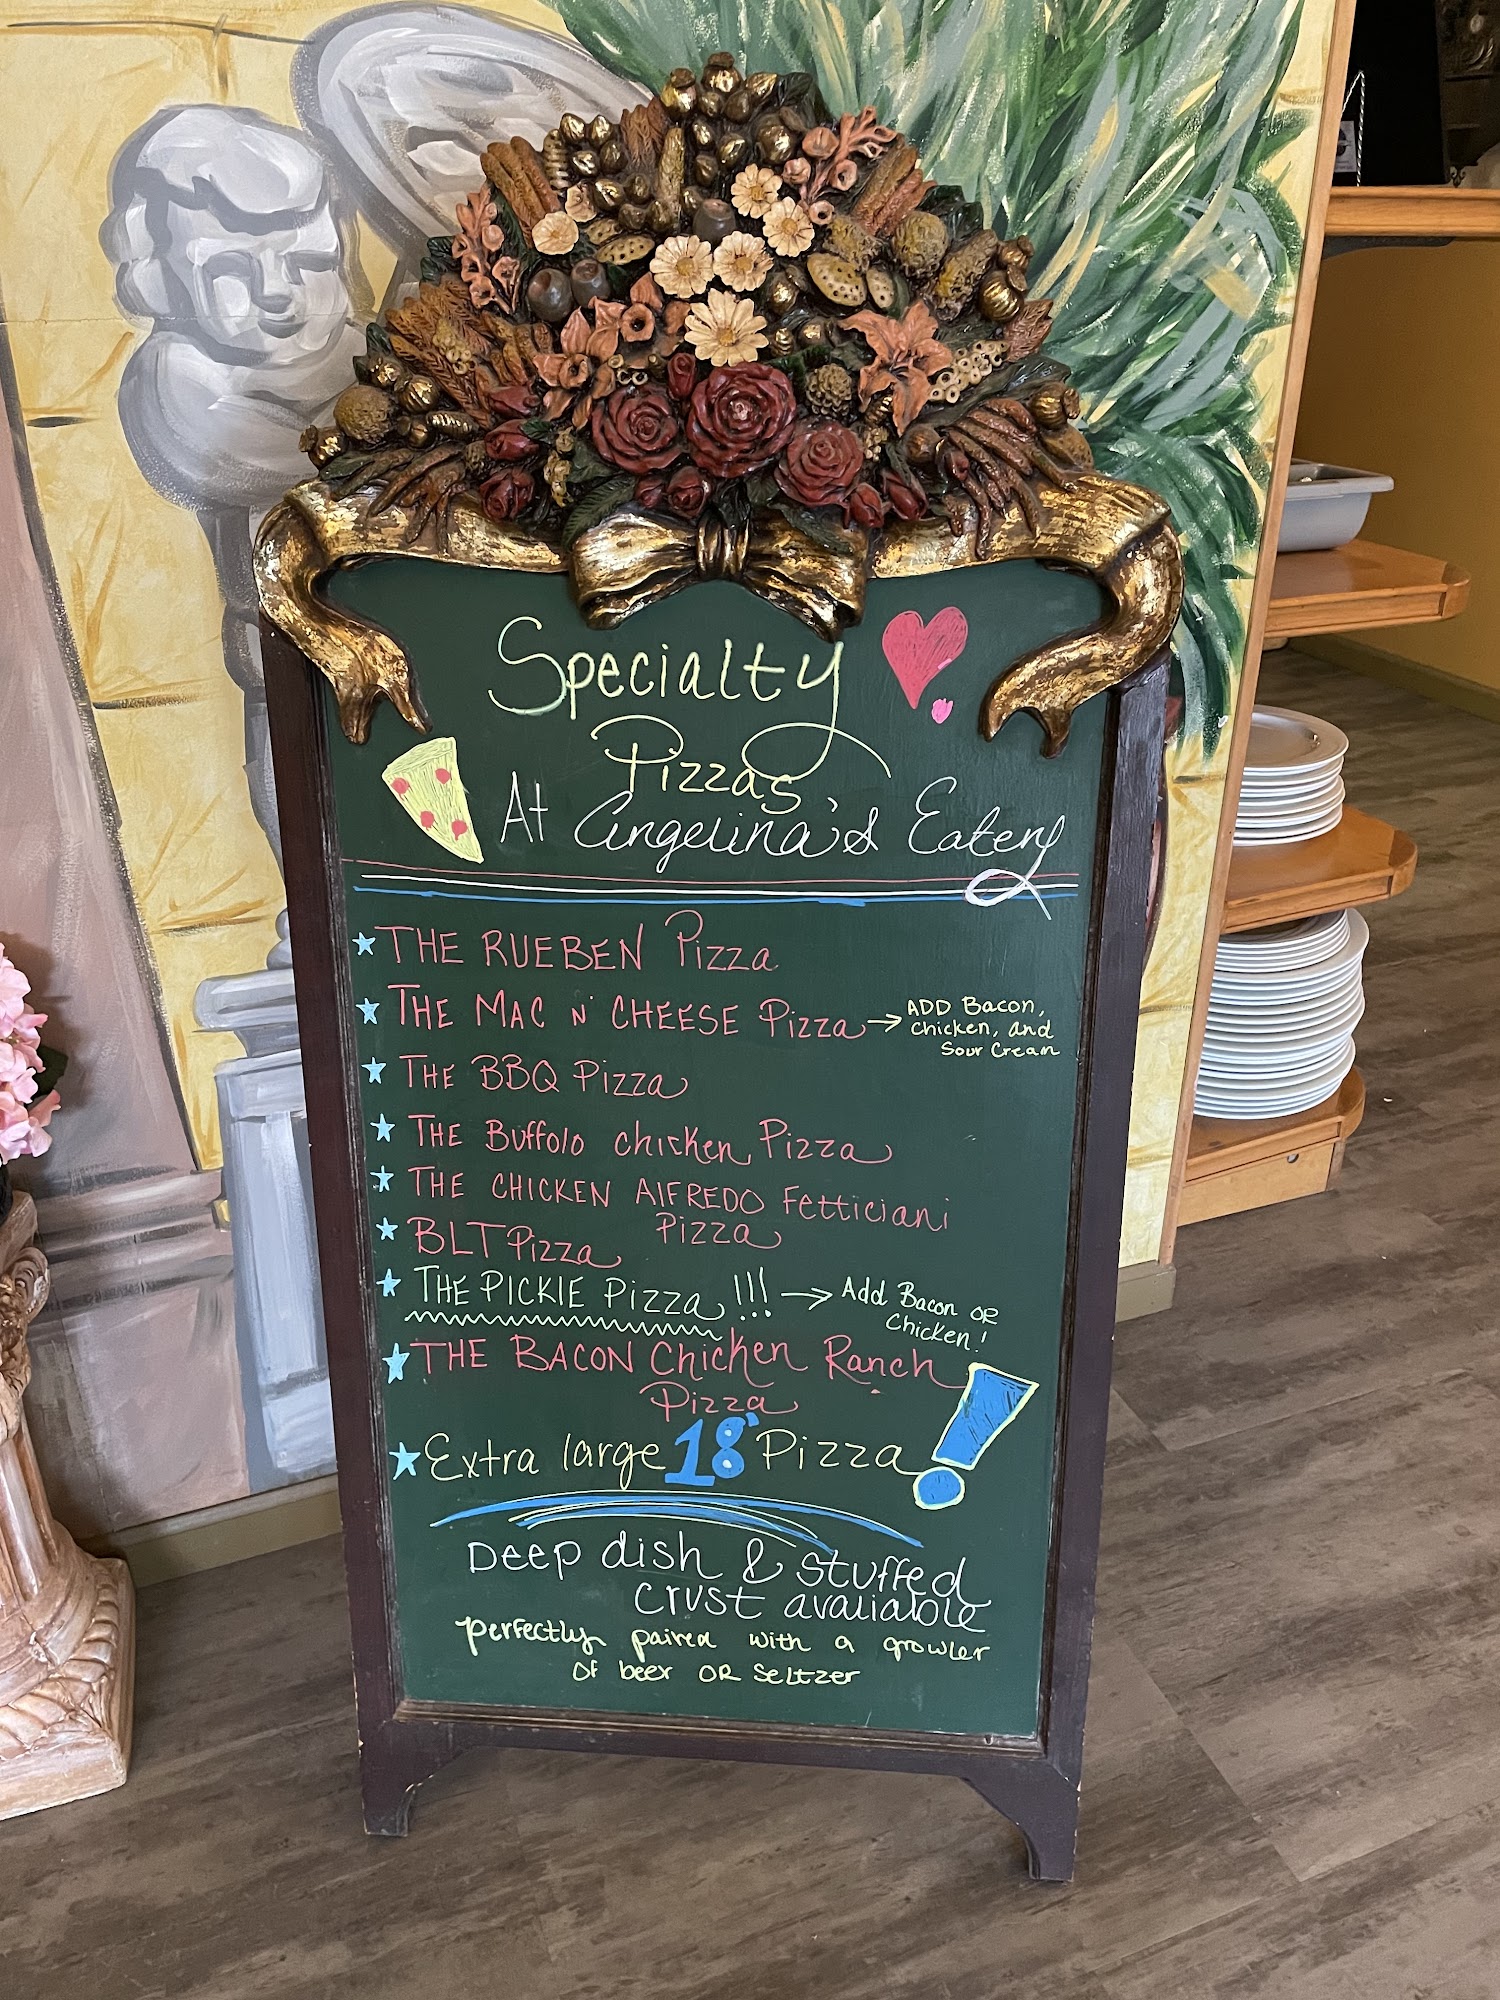 Specialty
Pizzas
At Angelina's Eatery
THE RUEBEN Pizza
THE MAC N' CHEESE Pizza → ADD Bacon,
Chicken, and
Sour Cream
THE BBQ Pizza
THE Buffolo chicken Pizza
THE CHICKEN AlFREDO Fetticiani
Pizza
BLT Pizza
THE PICKlE Pizza !!! → Add Bacon OR
Chicken!
THE BACON Chicken Ranch
Pizza
Extra large 18" Pizza !
Deep dish & stuffed
crust avaliable
perfectly paired with a growler
of beer OR Seltzer